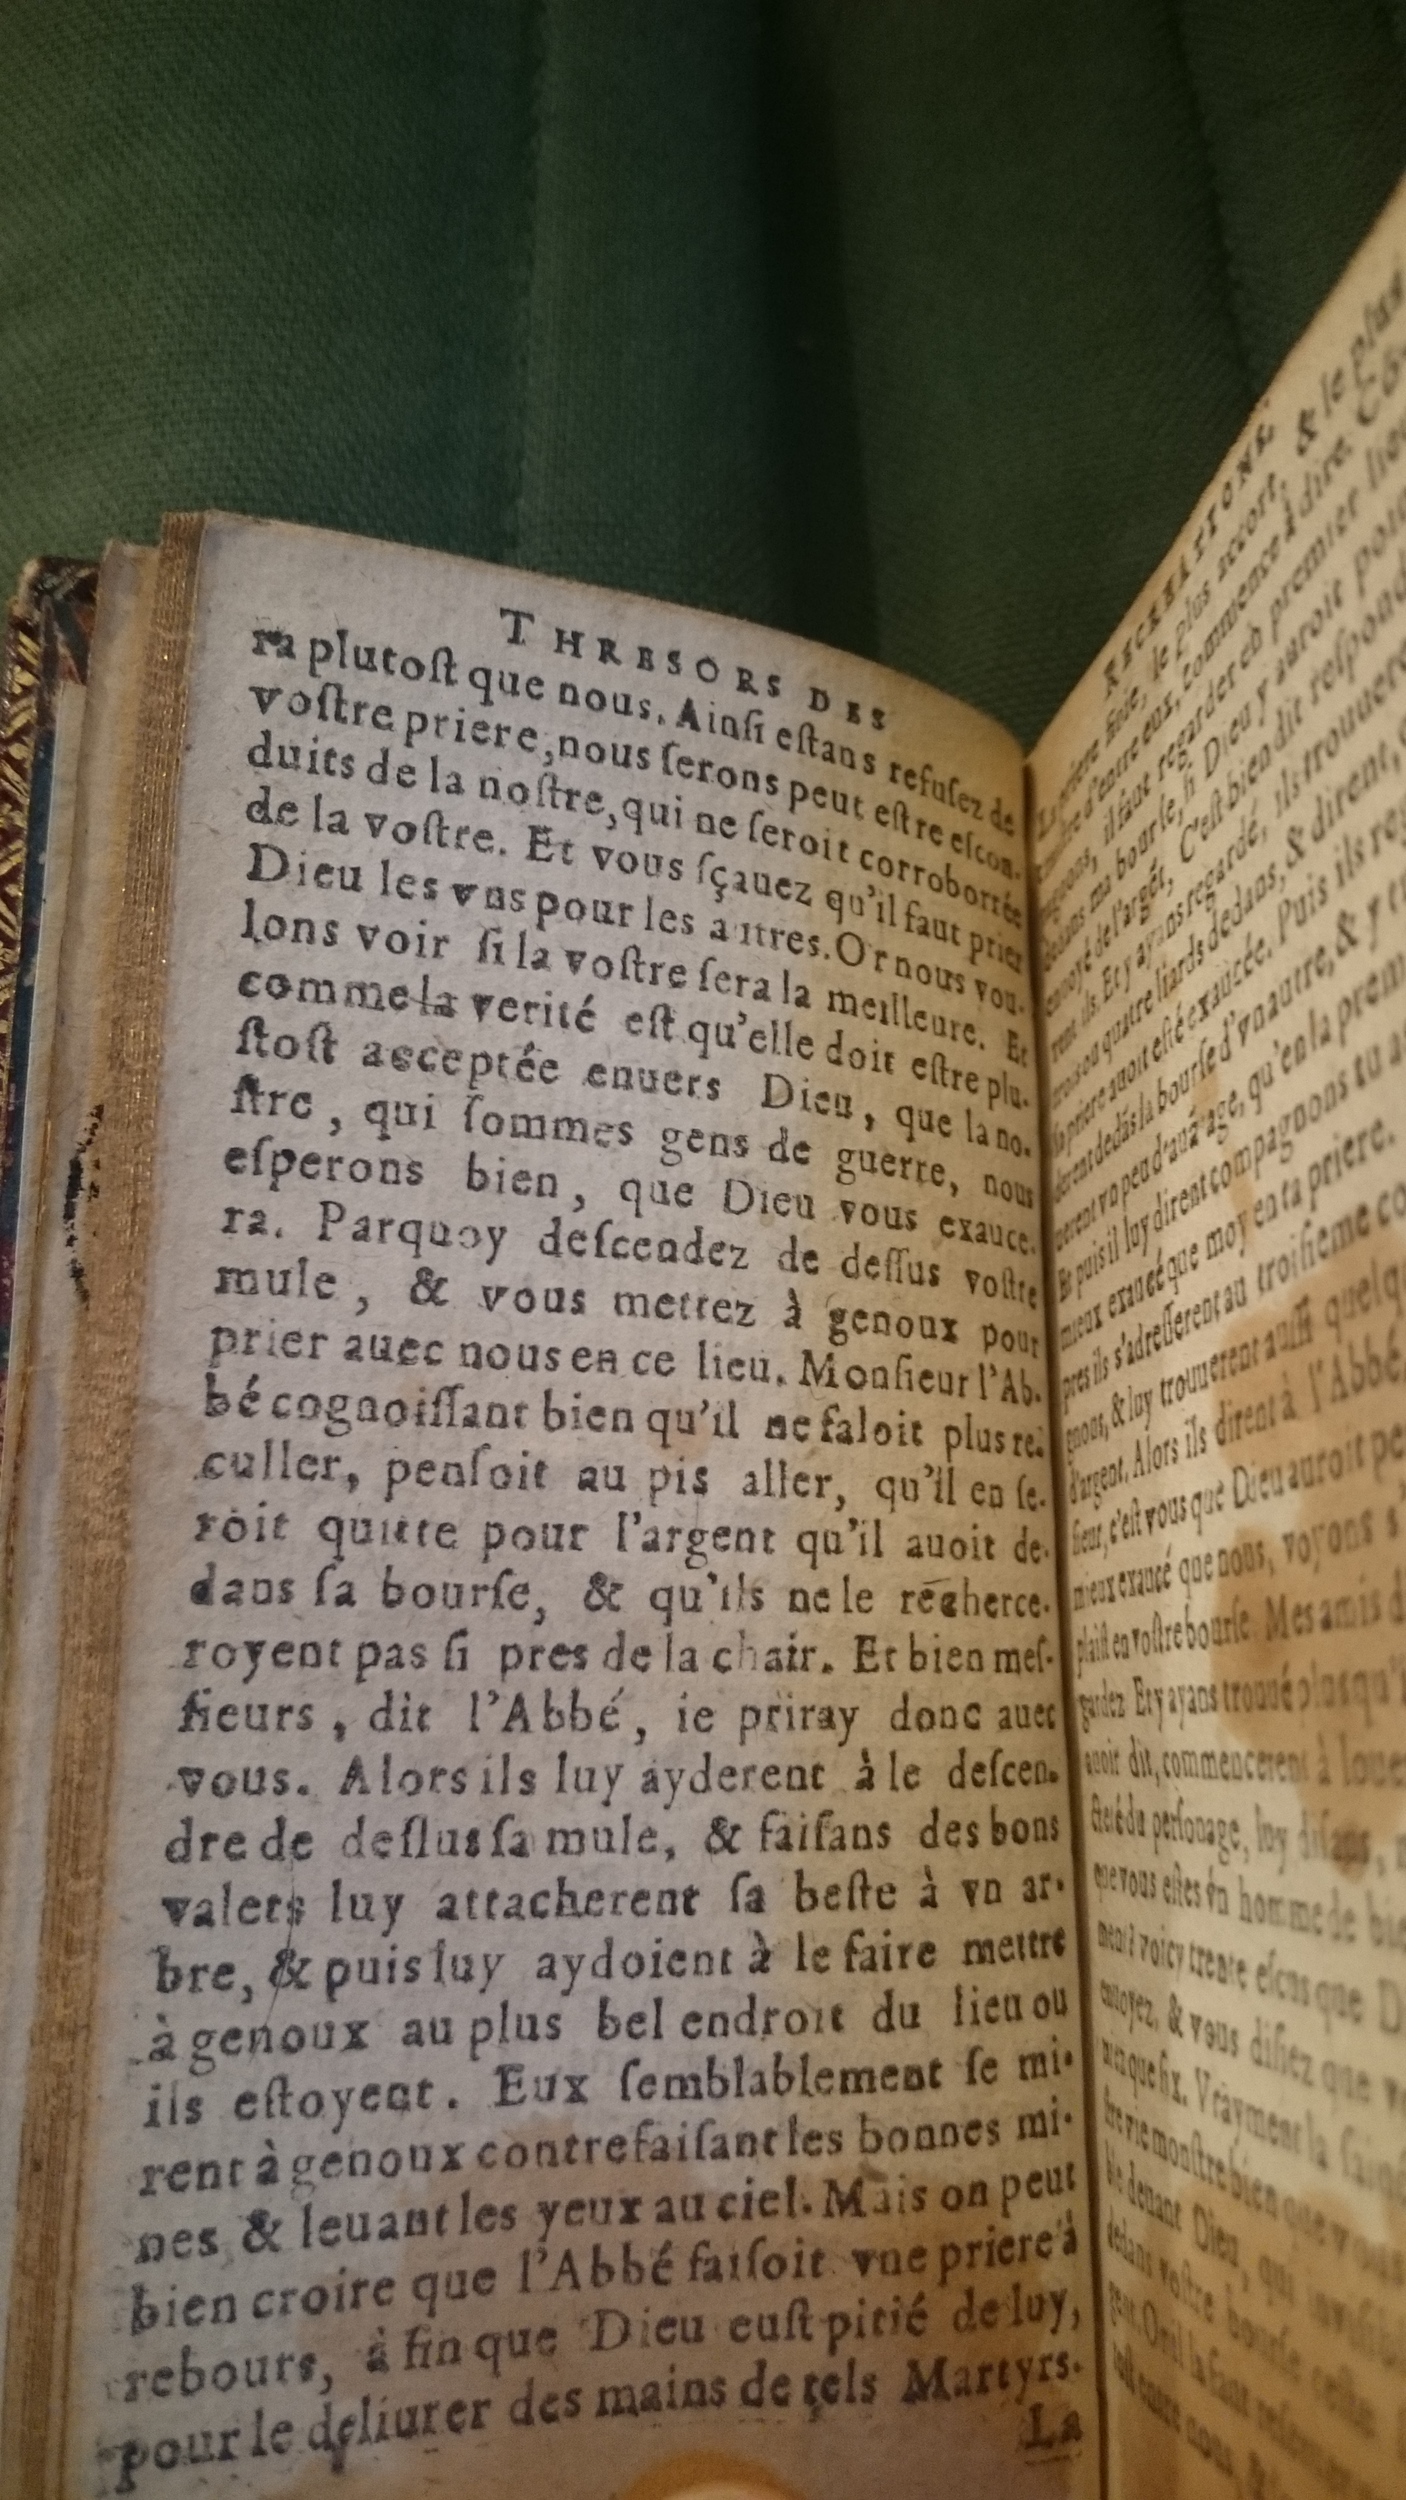 THRESORS DES
ra plutoſt que nous. Ainſi eſtans refuſez de
voſtre priere, nous ſerons peut eſtre eſcon-
duits de la noſtre, qui ne ſeroit corroborée
de la voſtre. Et vous ſçauez qu'il faut prier
Dieu les vns pour les autres. Or nous vou-
lons voir ſi la voſtre ſera la meilleure. Et
comme la verité eſt qu'elle doit eſtre plu-
ſtoſt acceptée enuers Dieu, que la no-
ſtre, qui ſommes gens de guerre, nous
eſperons bien, que Dieu vous exauce-
ra. Parquoy deſcendez de deſſus voſtre
mule, & vous mettez à genoux pour
prier auec nous en ce lieu. Monſieur l'Ab-
bé cognoiſſant bien qu'il ne faloit plus re-
culler, penſoit au pis aller, qu'il en ſe-
roit quitte pour l'argent qu'il auoit de-
dans ſa bourſe, & qu'ils ne le recherce-
royent pas ſi pres de la chair. Et bien meſ-
ſieurs, dit l'Abbé, ie priray donc auec
vous. Alors ils luy ayderent à le deſcen-
dre de deſſus ſa mule, & faiſans des bons
valets luy attacherent ſa beſte à vn ar-
bre, & puis luy aydoient à le faire mettre
à genoux au plus bel endroit du lieu ou
ils eſtoyent. Eux ſemblablement ſe mi-
rent à genoux contrefaiſant les bonnes mi-
nes & leuant les yeux au ciel. Mais on peut
bien croire que l'Abbé faiſoit vne priere à
rebours, à fin que Dieu euſt pitié de luy,
pour le deliurer des mains de tels Martyrs.
La
RECREATIONS.
& le plus
commence à dire.
il faut regarder en premier lieu
ma bourſe, ſi Dieu y auroit
de l'argét, C'eſt bien dit reſpond
ils. Et ayans regardé, ils trouuere
trois ou quatre liards dedans, & dirent,
ſa priere auoit eſté exaucée. Puis ils
dedás la bourſe d'vn autre, & y
vn peu d'auátage, qu'en la prem
Et puis il luy dirent compagnons tu
mieux exaucé que moy en ta priere.
pres ils s'adreſſerent au troiſieme co
gnons, & luy trouuerent auſſi quelqu
d'argent. Alors ils dirent à l'Abbé,
ſieur, c'eſt vous que Dieu auroit pe
mieux exaucé que nous, voyons s'
plaiſt en voſtre bourſe. Mes amis
gardez. Et y ayans trouué plus qu'
auoit dit, commencerent à louer
cteté du perſonage, luy diſans,
que vous eſtes vn homme de bie
voicy trente eſcus que D
enuoyez, & vous diſiez que
que ſix. Vrayment la
vie monſtre bien que vous
deuant Dieu, qui
dedans voſtre bourſe